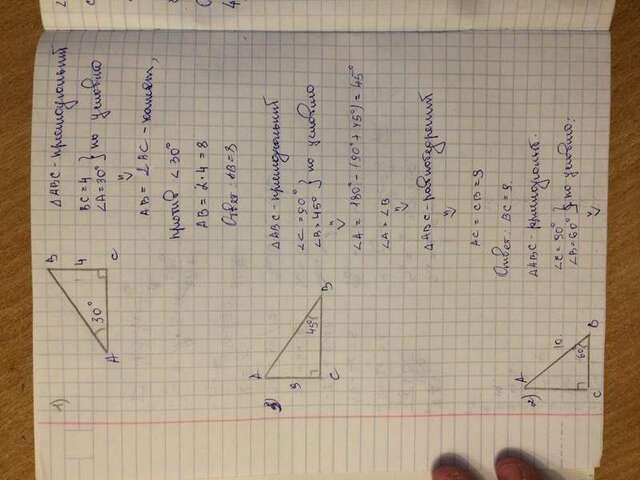 1)
B
4
30°
A
C
△ABC - прямоугольный
BC = 4
∠A = 30° } по условию
⇓
AB = 2AC - катет,
против ∠30°
AB = 2·4 = 8
Ответ: AB = 8
3)
A
9
45°
C
B
△ABC - прямоугольный
∠C = 90°
∠B = 45° } по условию
⇓
∠A = 180° - (90° + 45°) = 45°
∠A = ∠B
⇓
△ABC - равнобедренный
⇓
AC = CB = 9
Ответ: BC = 9.
2)
A
10
60°
C
B
△ABC - прямоугольн.
∠C = 90°
∠B = 60° } по условию:
⇓